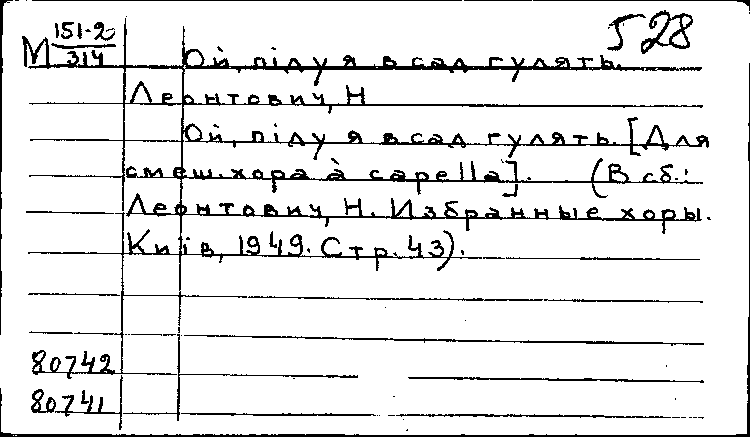 528
М 151-2/314
Ой, піду я в сад гулять.
Леонтович, Н
Ой, піду я в сад гулять. [Для
смеш. хора à capella]. (В сб.:
Леонтович, Н. Избранные хоры.
Київ, 1949. Стр. 43).
80742
80741